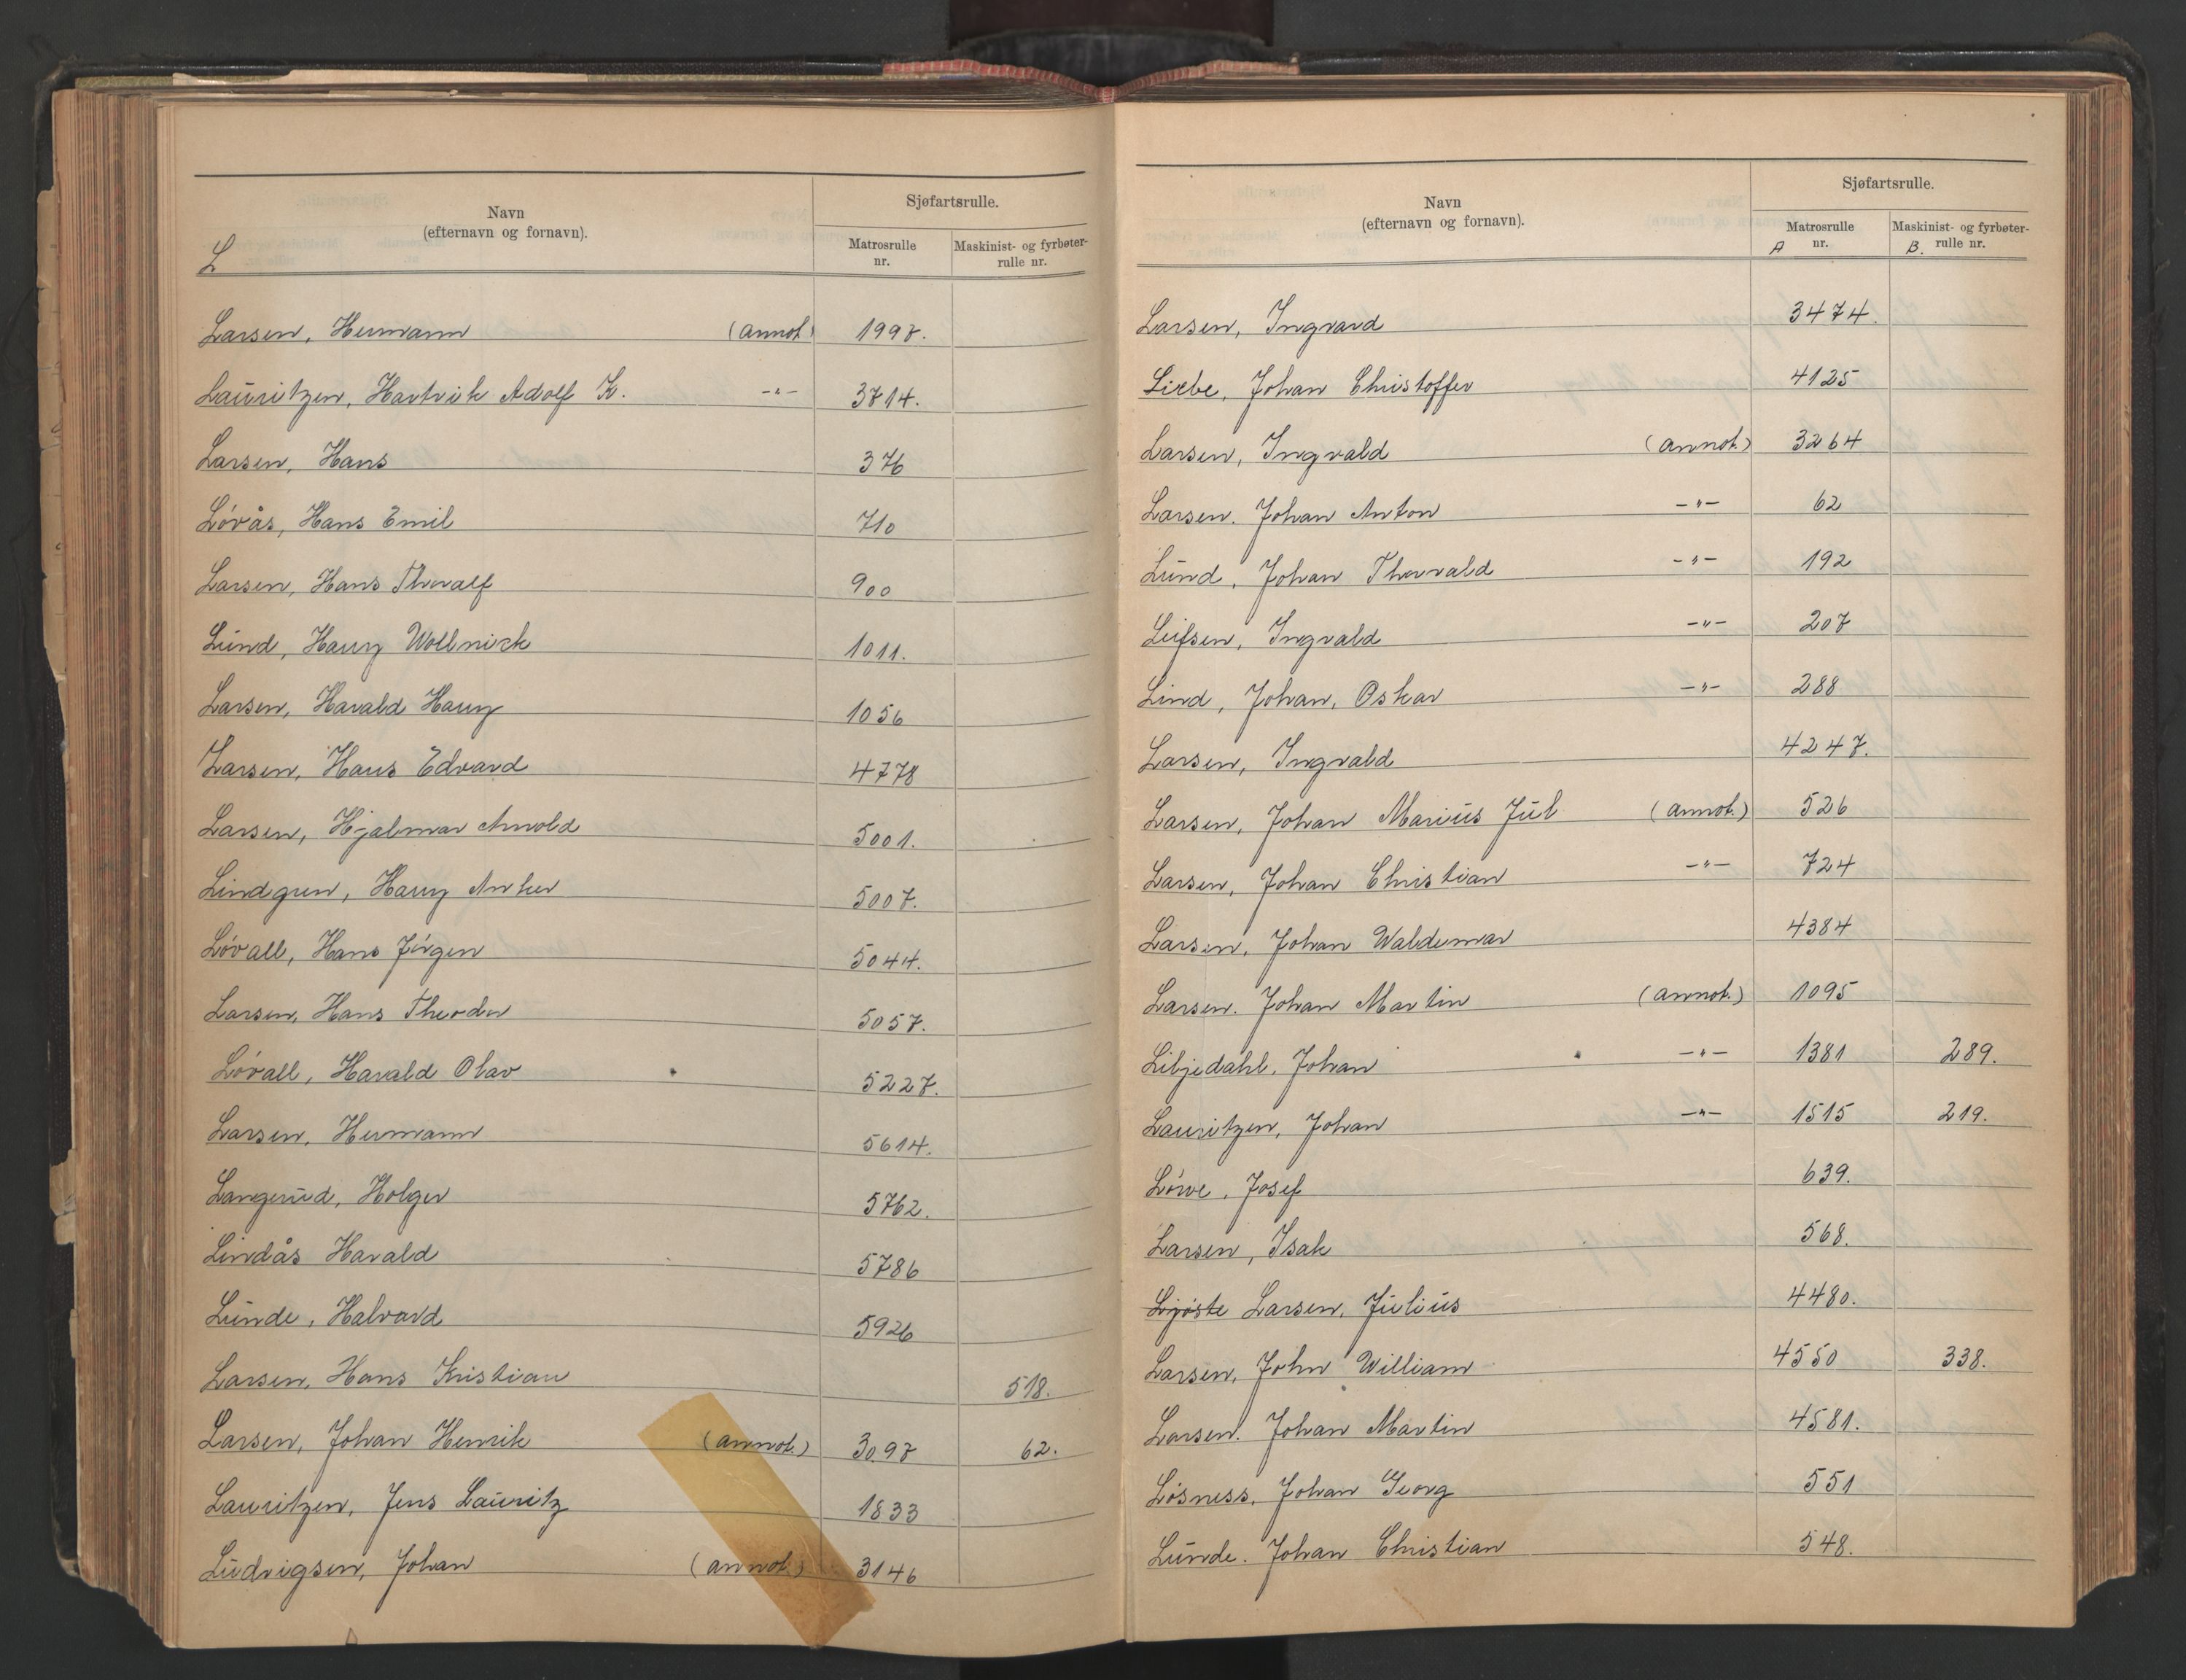 L
Navn
(efternavn og fornavn).
Sjøfartsrulle.
Matrosrulle nr.
Maskinist- og fyrbøter-rulle nr.
Larsen, Hermann (annot) 1997.
Lauritzen, Hartvik Adolf K. -"- 3714.
Larsen, Hans 376
Løvås, Hans Emil 710
Larsen, Hans Thoralf 900
Lund, Harry Wollnick 1011.
Larsen, Harald Harry 1056
Larsen, Hans Edvard 4778
Larsen, Hjalmar Arnold 5001.
Lindgren, Harry Anker 5007.
Løvall, Hans Jørgen 5044.
Larsen, Hans Theodor 5057.
Løvall, Harald Olav 5227.
Larsen, Hermann 5614.
Langerud, Holger 5762.
Lindås Harald 5786
Lunde, Halvard 5926
Larsen, Hans Kristian 518.
Larsen, Johan Henrik (annot.) 3097 62.
Lauritzen, Jens Lauritz 1833
Ludvigsen, Johan (annot.) 3146
Navn
(efternavn og fornavn).
Sjøfartsrulle.
Matrosrulle nr. A
Maskinist- og fyrbøter-rulle nr. B.
Larsen, Ingvard 3474.
Liebe, Johan Christoffer 4125
Larsen, Ingvald (annot.) 3264
Larsen. Johan Anton -"- 62
Lund, Johan Thorvald -"- 192
Leifsen, Ingvald -"- 207
Lind, Johan, Oskar -"- 288
Larsen, Ingvald 4247.
Larsen, Johan Marius Jul (annot.) 526
Larsen, Johan Christian -"- 724
Larsen, Johan Waldemar 4384
Larsen. Johan Martin (annot.) 1095
Liljedahl, Johan -"- 1381 289.
Lauritzen, Johan -"- 1515 219.
Løwe, Josef 639.
Larsen, Isak 568.
Ljøste Larsen, Julius 4480.
Larsen, John William 4550 338.
Larsen. Johan Martin 4581.
Løsness, Johan Georg 551
Lunde. Johan Christian 548.